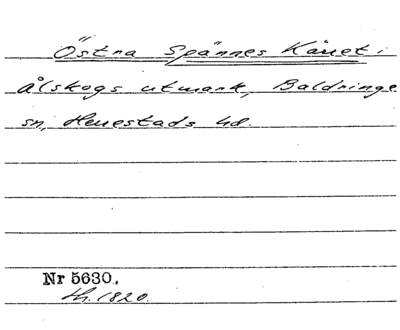 Östra Spännes Käuet i
Ålskogs utmark, Baldringe
sn, Herrestads hd.
Nr 5630.
th. 1820.